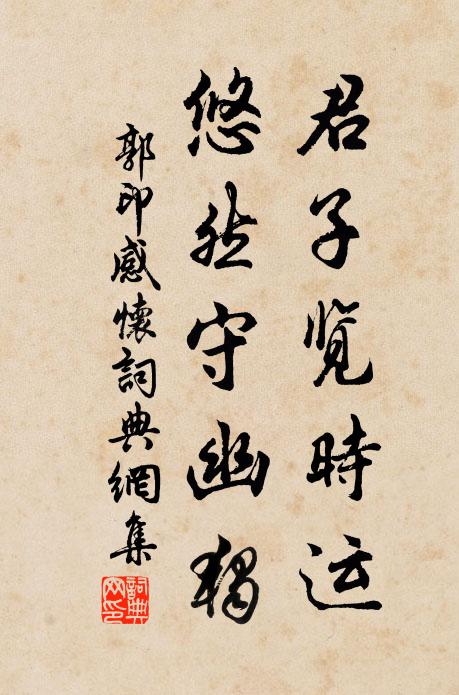 君子览時运
悠然守幽独
郭印感懷詞典網集
詞典网印